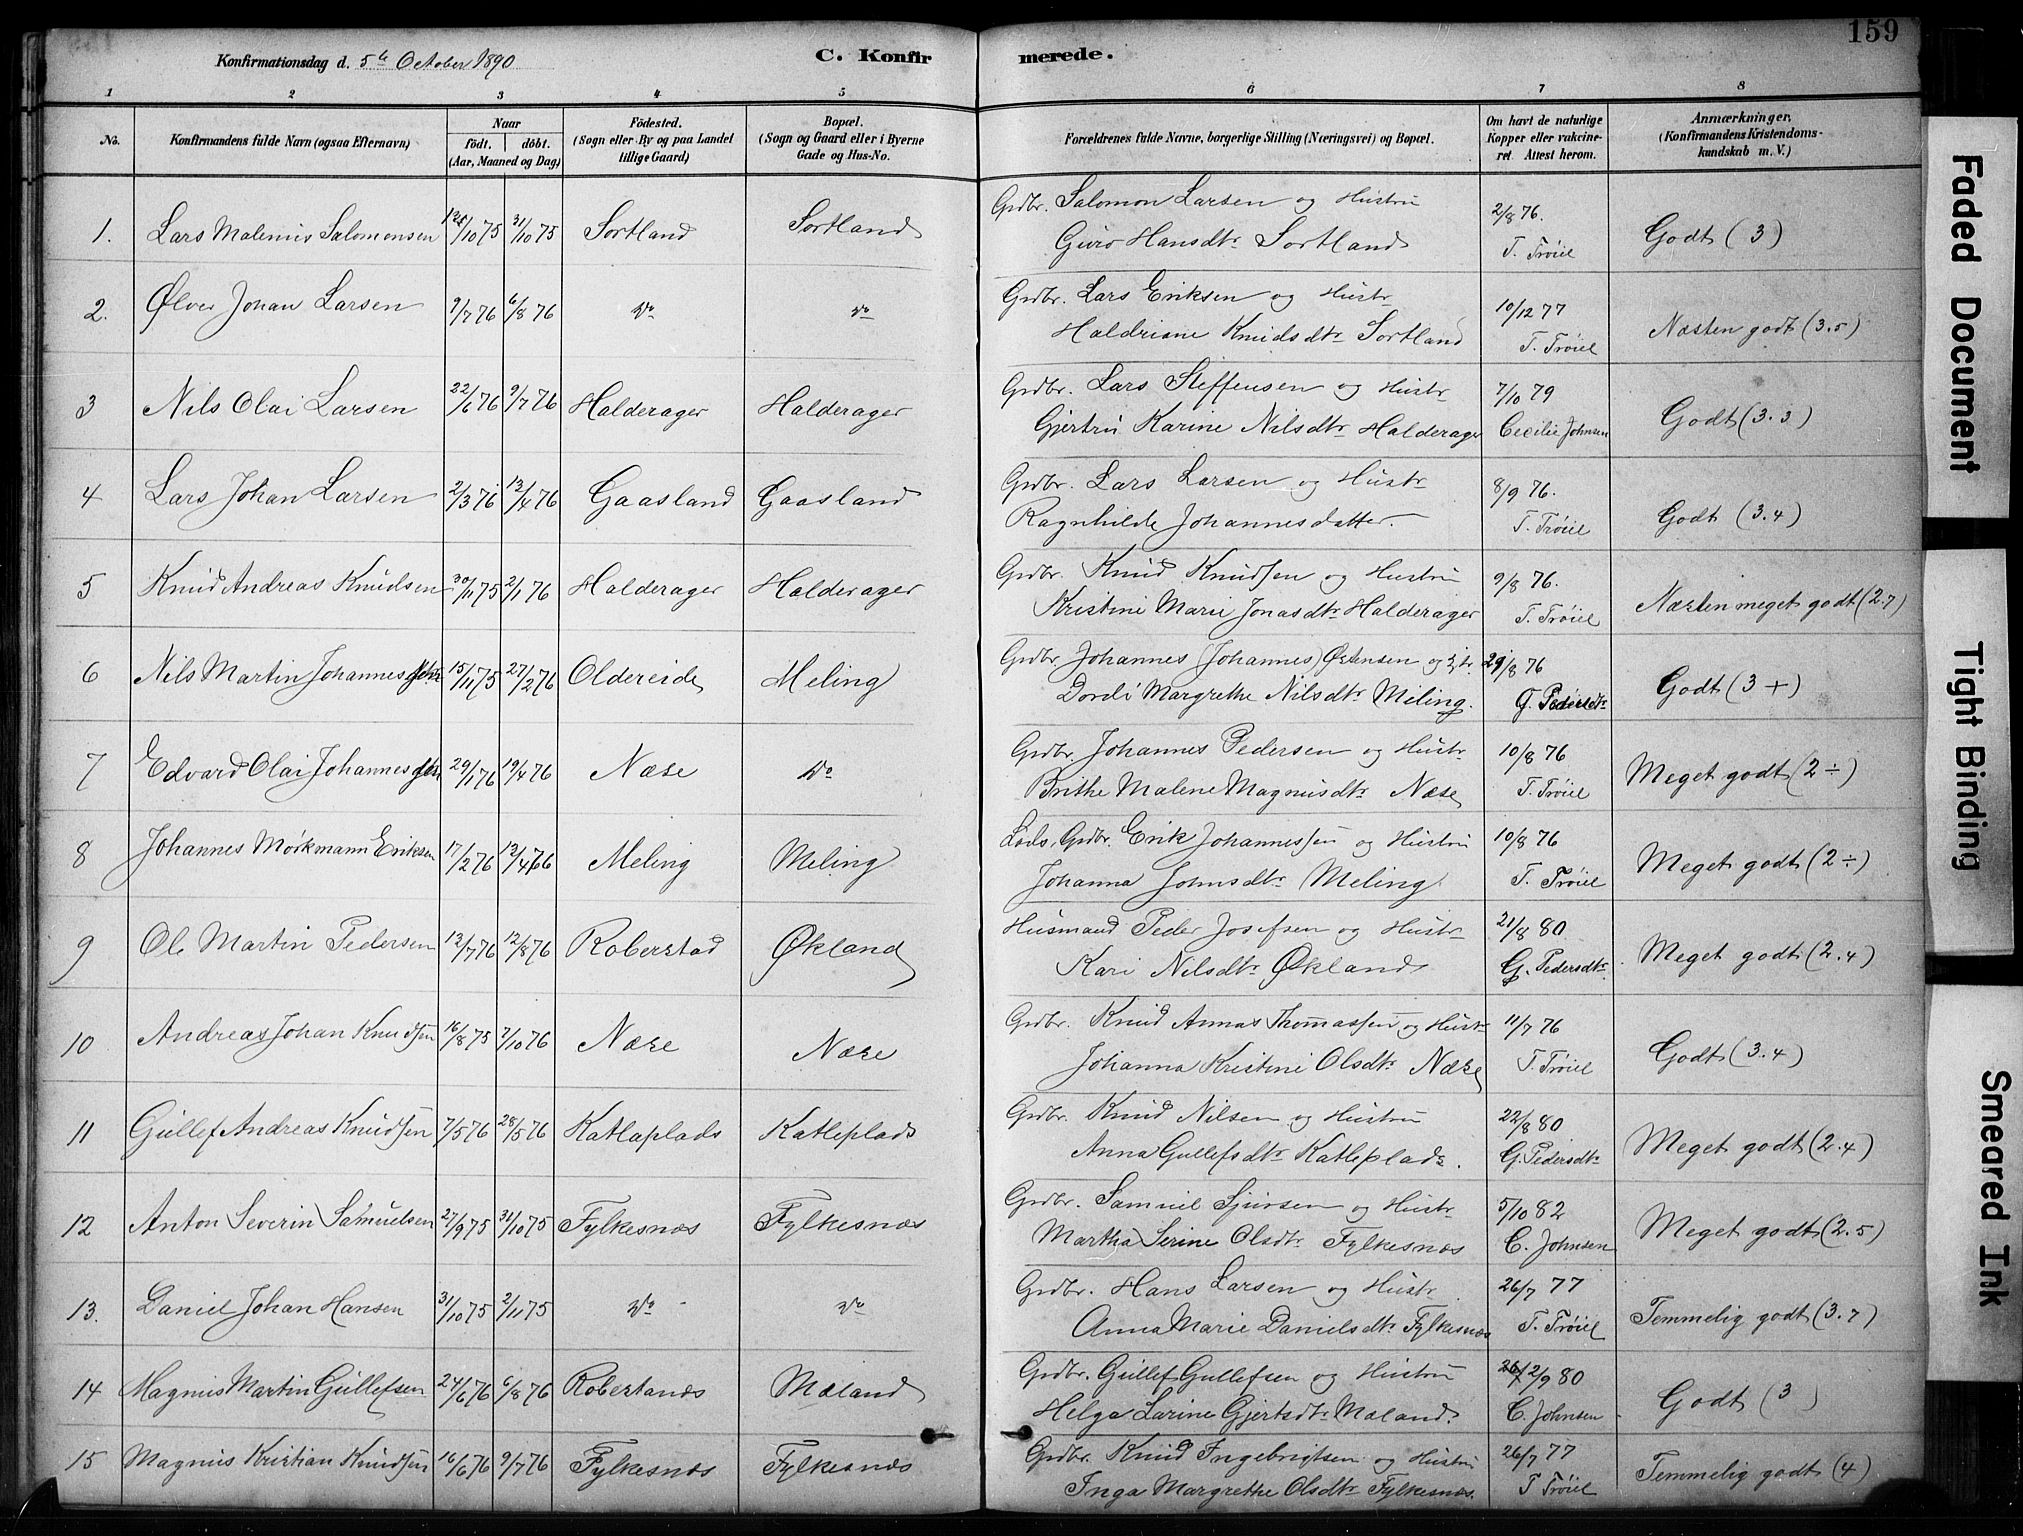 159
Konfirmationsdag d. 5te October 1890
C. Konfirmerede.
1 2 3 4 5 6 7 8
No.
Konfirmandens fulde Navn (ogsaa Efternavn)
Naar
födt. döbt.
(Aar, Maaned og Dag)
Födested.
(Sogn eller By og paa Landet
tillige Gaard)
Bopæl.
(Sogn og Gaard eller i Byerne
Gade og Hus-No.
Forældrenes fulde Navne, borgerlige Stilling (Næringsvei) og Bopæl.
Om havt de naturlige
Kopper eller vakcine-
ret. Attest herom.
Anmærkninger,
(Konfirmandens Kristendoms-
kundskab m. V.)
1. Lars Malenius Salomonsen 12/10 75 31/10 75 Sortland Sortland Grdbr. Salomon Larsen og Hustru 2/8 76. Godt (3)
Guro Hansdtr Sortland T. Trøiel
2. Ølver Johan Larsen 9/7 76 6/8 76 Do Do Grdbr. Lars Eriksen og Hustr 10/12 77 Næsten godt (3.5)
Haldriane Knudsdtr Sortland T. Trøiel
3 Nils Olai Larsen 22/6 76 9/7 76 Halderager Halderager Grdbr. Lars Steffensen og Hustr 7/10 79 Godt (3.3)
Gjertru Karine Nilsdtr Halderager Cecilie Johnsen
4 Lars Johan Larsen 2/3 76 13/4 76 Gaasland Gaasland Grdbr. Lars Larsen og Hustr 8/9 76. Godt (3.4)
Ragnhilde Johannesdatter. T. Trøiel
5 Knud Andreas Knudsen 30/11 75 2/1 76 Halderager Halderager Grdbr. Knud Knudsen og Hustru 9/8 76. Næsten meget godt (2.7)
Kristine Marie Jonasdtr Halderager T. Trøiel
6 Nils Martin Johannes 15/11 75 27/2 76 Oldereide Meling Grdbr. Johannes (Johannes) Østensen og 29/8 76 Godt (3+)
Dordi Margrethe Nilsdtr Meling. G. Pedersdtr
7 Edvard Olai Johannessen 29/1 76 19/4 76 Næse Do Grdbr. Johannes Pedersen og Hustr 10/8 76 Meget godt (2÷)
Brithe Malene Magnusdtr Næse T. Trøiel
8 Johannes Mørkmann Eriksen 17/2 76 13/4 76 Meling Meling Lods, Grdbr. Erik Johannessen og Hustru 10/8 76 Meget godt (2÷)
Johanna Johnsdtr Meling T. Trøiel
9 Ole Martin Pedersen 12/7 76 12/8 76 Roberstad Økland Husmand Peder Josefsen og Hustr 21/8 80 Meget godt (2.4)
Kari Nilsdtr Økland G. Pedersdtr
10 Andreas Johan Knudsen 16/8 75 7/10 76 Næse Næse Grdbr. Knud Annas Thomassen og Hustr 11/7 76 Godt (3.4)
Johanna Kristine Olsdtr Næse T. Trøiel
11 Gullef Andreas Knudsen 7/5 76 28/5 76 Katlaplads Katleplads Grdbr. Knud Nilsen og Hustru 22/8 80 Meget godt (2.4)
Anna Gullefsdtr Katleplads. G. Pedersdtr
12 Anton Severin Samuelsen 27/9 75 31/10 75 Fylkesnæs Fylkesnæs Grdbr. Samuel Sjursen og Hustr 5/10 82 Meget godt (2.5)
Martha Serine Olsdtr Fylkesnæs C. Johnsen
13. Daniel Johan Hansen 31/10 75 2/11 75 Do Do Grdbr. Hans Larsen og Hustr 26/7 77 Temmelig godt (3.7)
Anna Marie Danielsdtr Fylkesnæs T. Trøiel
14 Magnus Martin Gullefsen 24/6 76 6/8 76 Robertanæs Mæland Grdbr. Gullef Gullefsen og Hustru 2/9 80 Godt (3)
Helga Larine Gjertsdtr Mæland. C. Johnsen
15 Magnus Kristian Knudsen 16/6 76 9/7 76 Fylkesnæs Fylkesnæs Grdbr. Knud Ingebrigtsen og Hustru 26/7 77 Temmelig godt (4)
Inga Margrethe Olsdtr Fylkesnæs. T Trøiel
Faded Document
Tight Binding
Smeared Ink